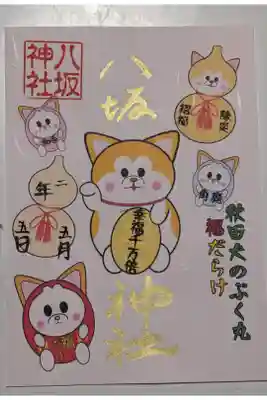 八坂
神社
八坂
神社
招福
幸福千万倍
二年
五月
五日
角館
秋田犬のぶく丸
福だらけ